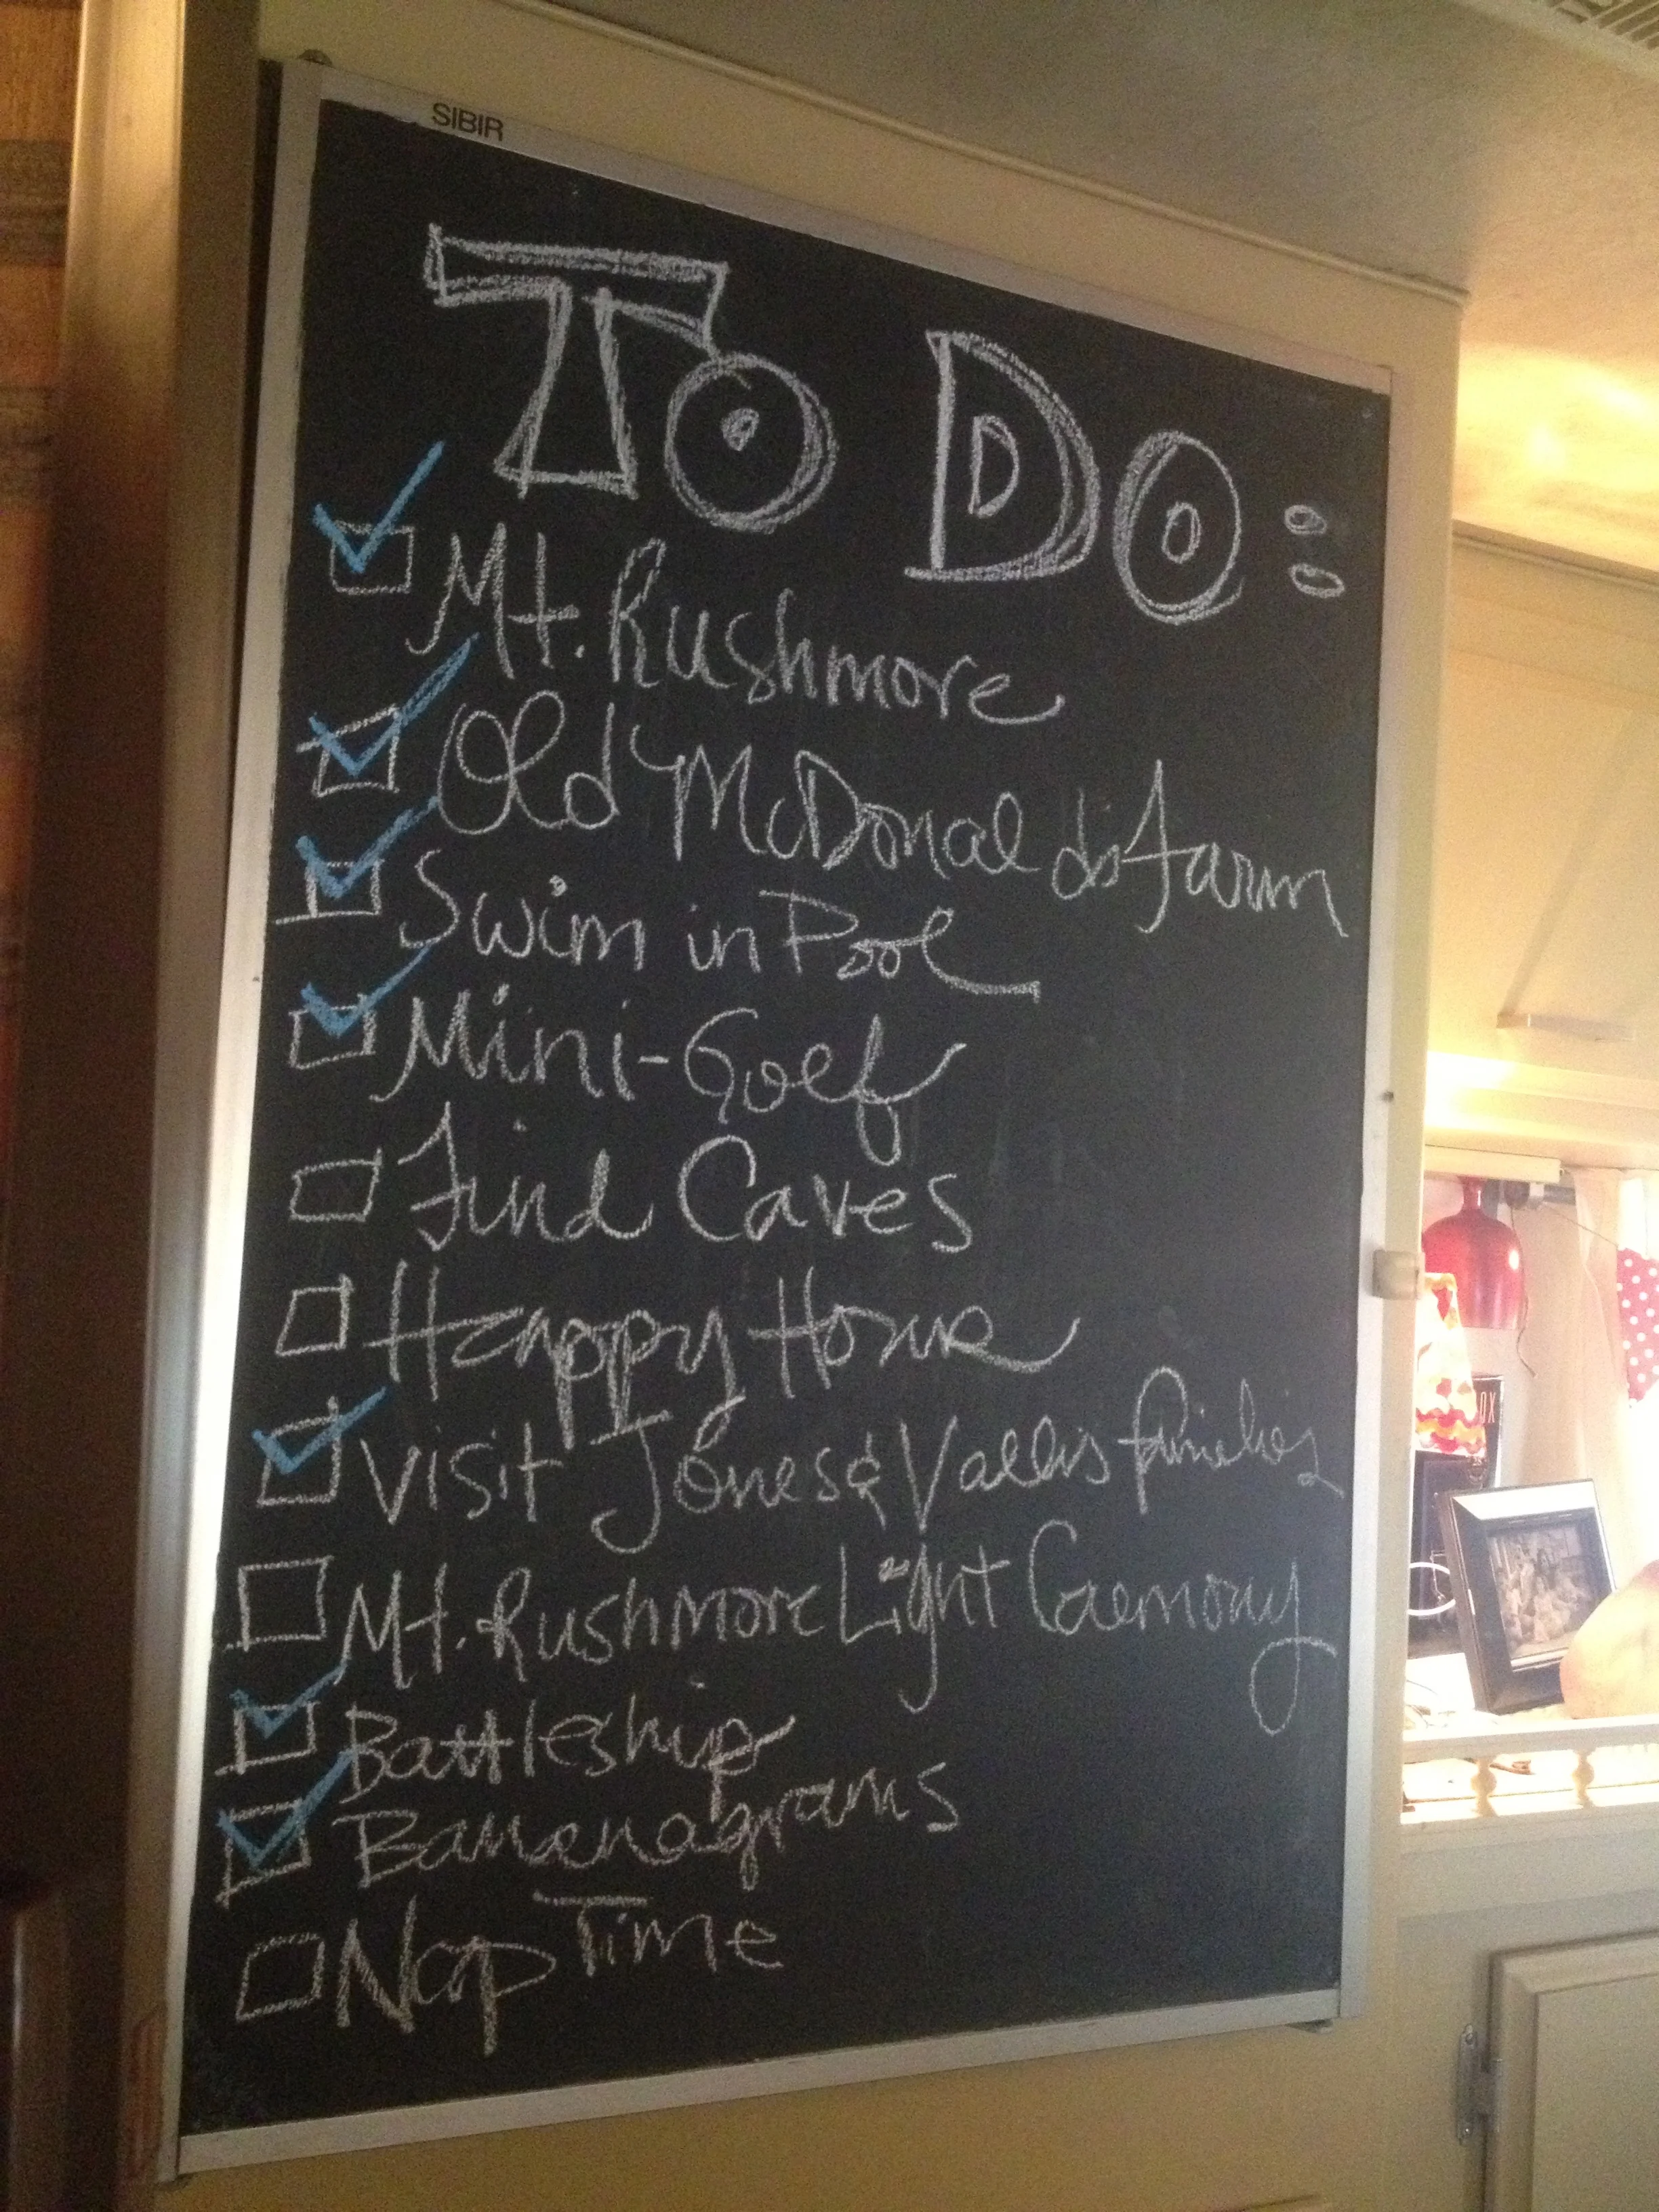 SIBIR
To Do:
Mt. Rushmore
Old McDonald's Farm
Swim in Pool
Mini-Golf
Find Caves
Happy Home
Visit Jones & families
Mt. Rushmore Light Ceremony
Battleship
Bananagrams
Nap Time